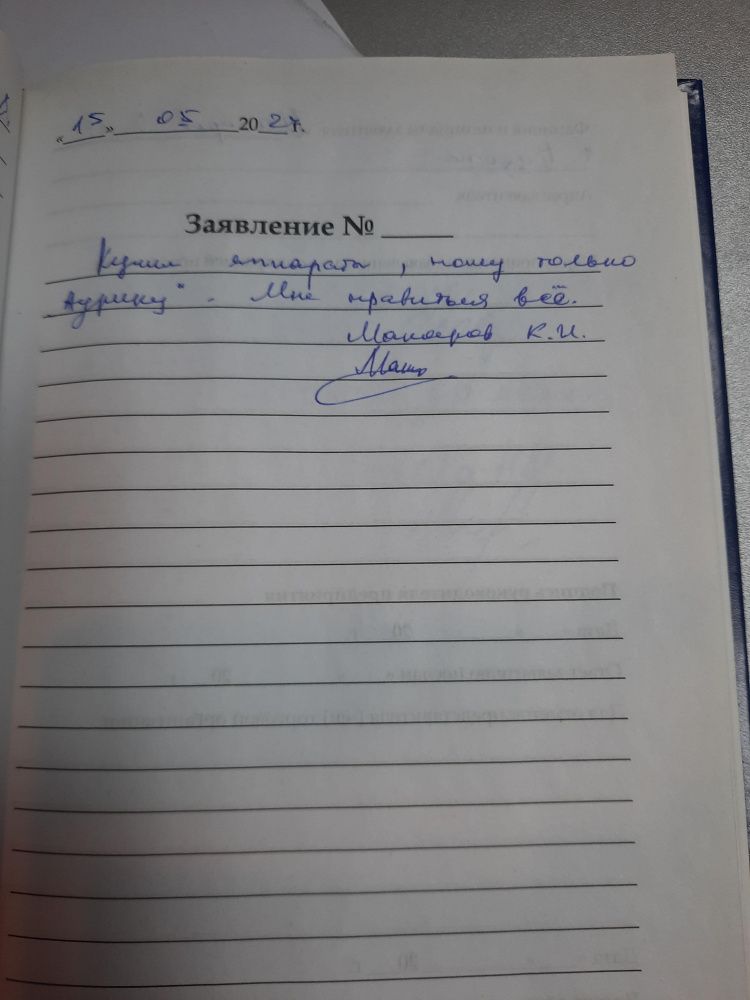 «15» 05 2024 г.
Заявление №
Купил аппараты, ношу только
"Аурику". Мне нравиться всё.
К.И.